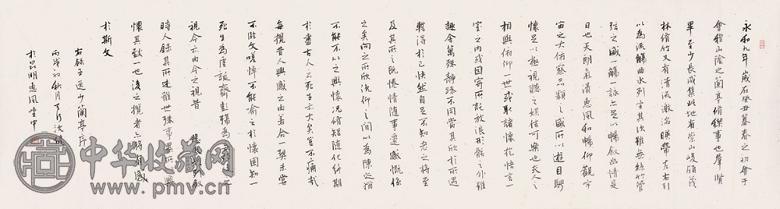 永和九年歲在癸丑暮春之初會于
會稽山陰之蘭亭脩禊事也羣賢
畢至少長咸集此地有崇山峻領茂
林脩竹又有清流激湍映帶左右引
以為流觴曲水列坐其次雖無絲竹管
弦之盛一觴一詠亦足以暢敘幽情是
日也天朗氣清惠風和暢仰觀宇
宙之大俯察品類之盛所以遊目騁
懷足以極視聽之娛信可樂也夫人之
相與俯仰一世或取諸懷抱悟言一
室之內或因寄所託放浪形骸之外雖
趣舍萬殊靜躁不同當其欣於所遇
暫得於己快然自足不知老之將至
及其所之既惓情隨事遷感慨係
之矣向之所欣俛仰之間以為陳迹猶
不能不以之興懷況脩短隨化終期
於盡古人云死生亦大矣豈不痛哉
每攬昔人興感之由若合一契未嘗
不臨文嗟悼不能喻之於懷固知一
死生為虛誕齊彭殤為
視今亦由今之視昔
時人錄其所述雖世殊事異所以
懷其致一也後之攬者亦將有感
於斯文
右錄王逸少蘭亭序
於昆明惠風堂中
中华收藏网
www.pmcv.cn
中华收藏网
www.pmcv.cn